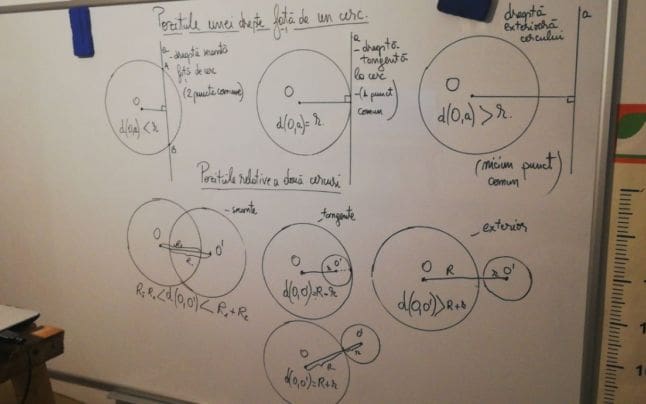 Pozițiile unei drepte față de un cerc.
a
- dreaptă secantă
față de cerc
(2 puncte comune)
A
O
d(O,a) < r
B
a
- dreaptă
tangentă
la cerc
- (1 punct
comun)
O
d(O,a) = r.
dreaptă
exterioară
cercului
a
O
d(O,a) > r.
(niciun punct
comun)
Pozițiile relative a două cercuri
- secante
O
O'
d(O,O') < R₁ + R₂
tangente
O
r
O'
d(O,O') = R - r
- exterior
O
R
r
O'
d(O,O') > R + r
O'
r
R
O
d(O,O') = R + r